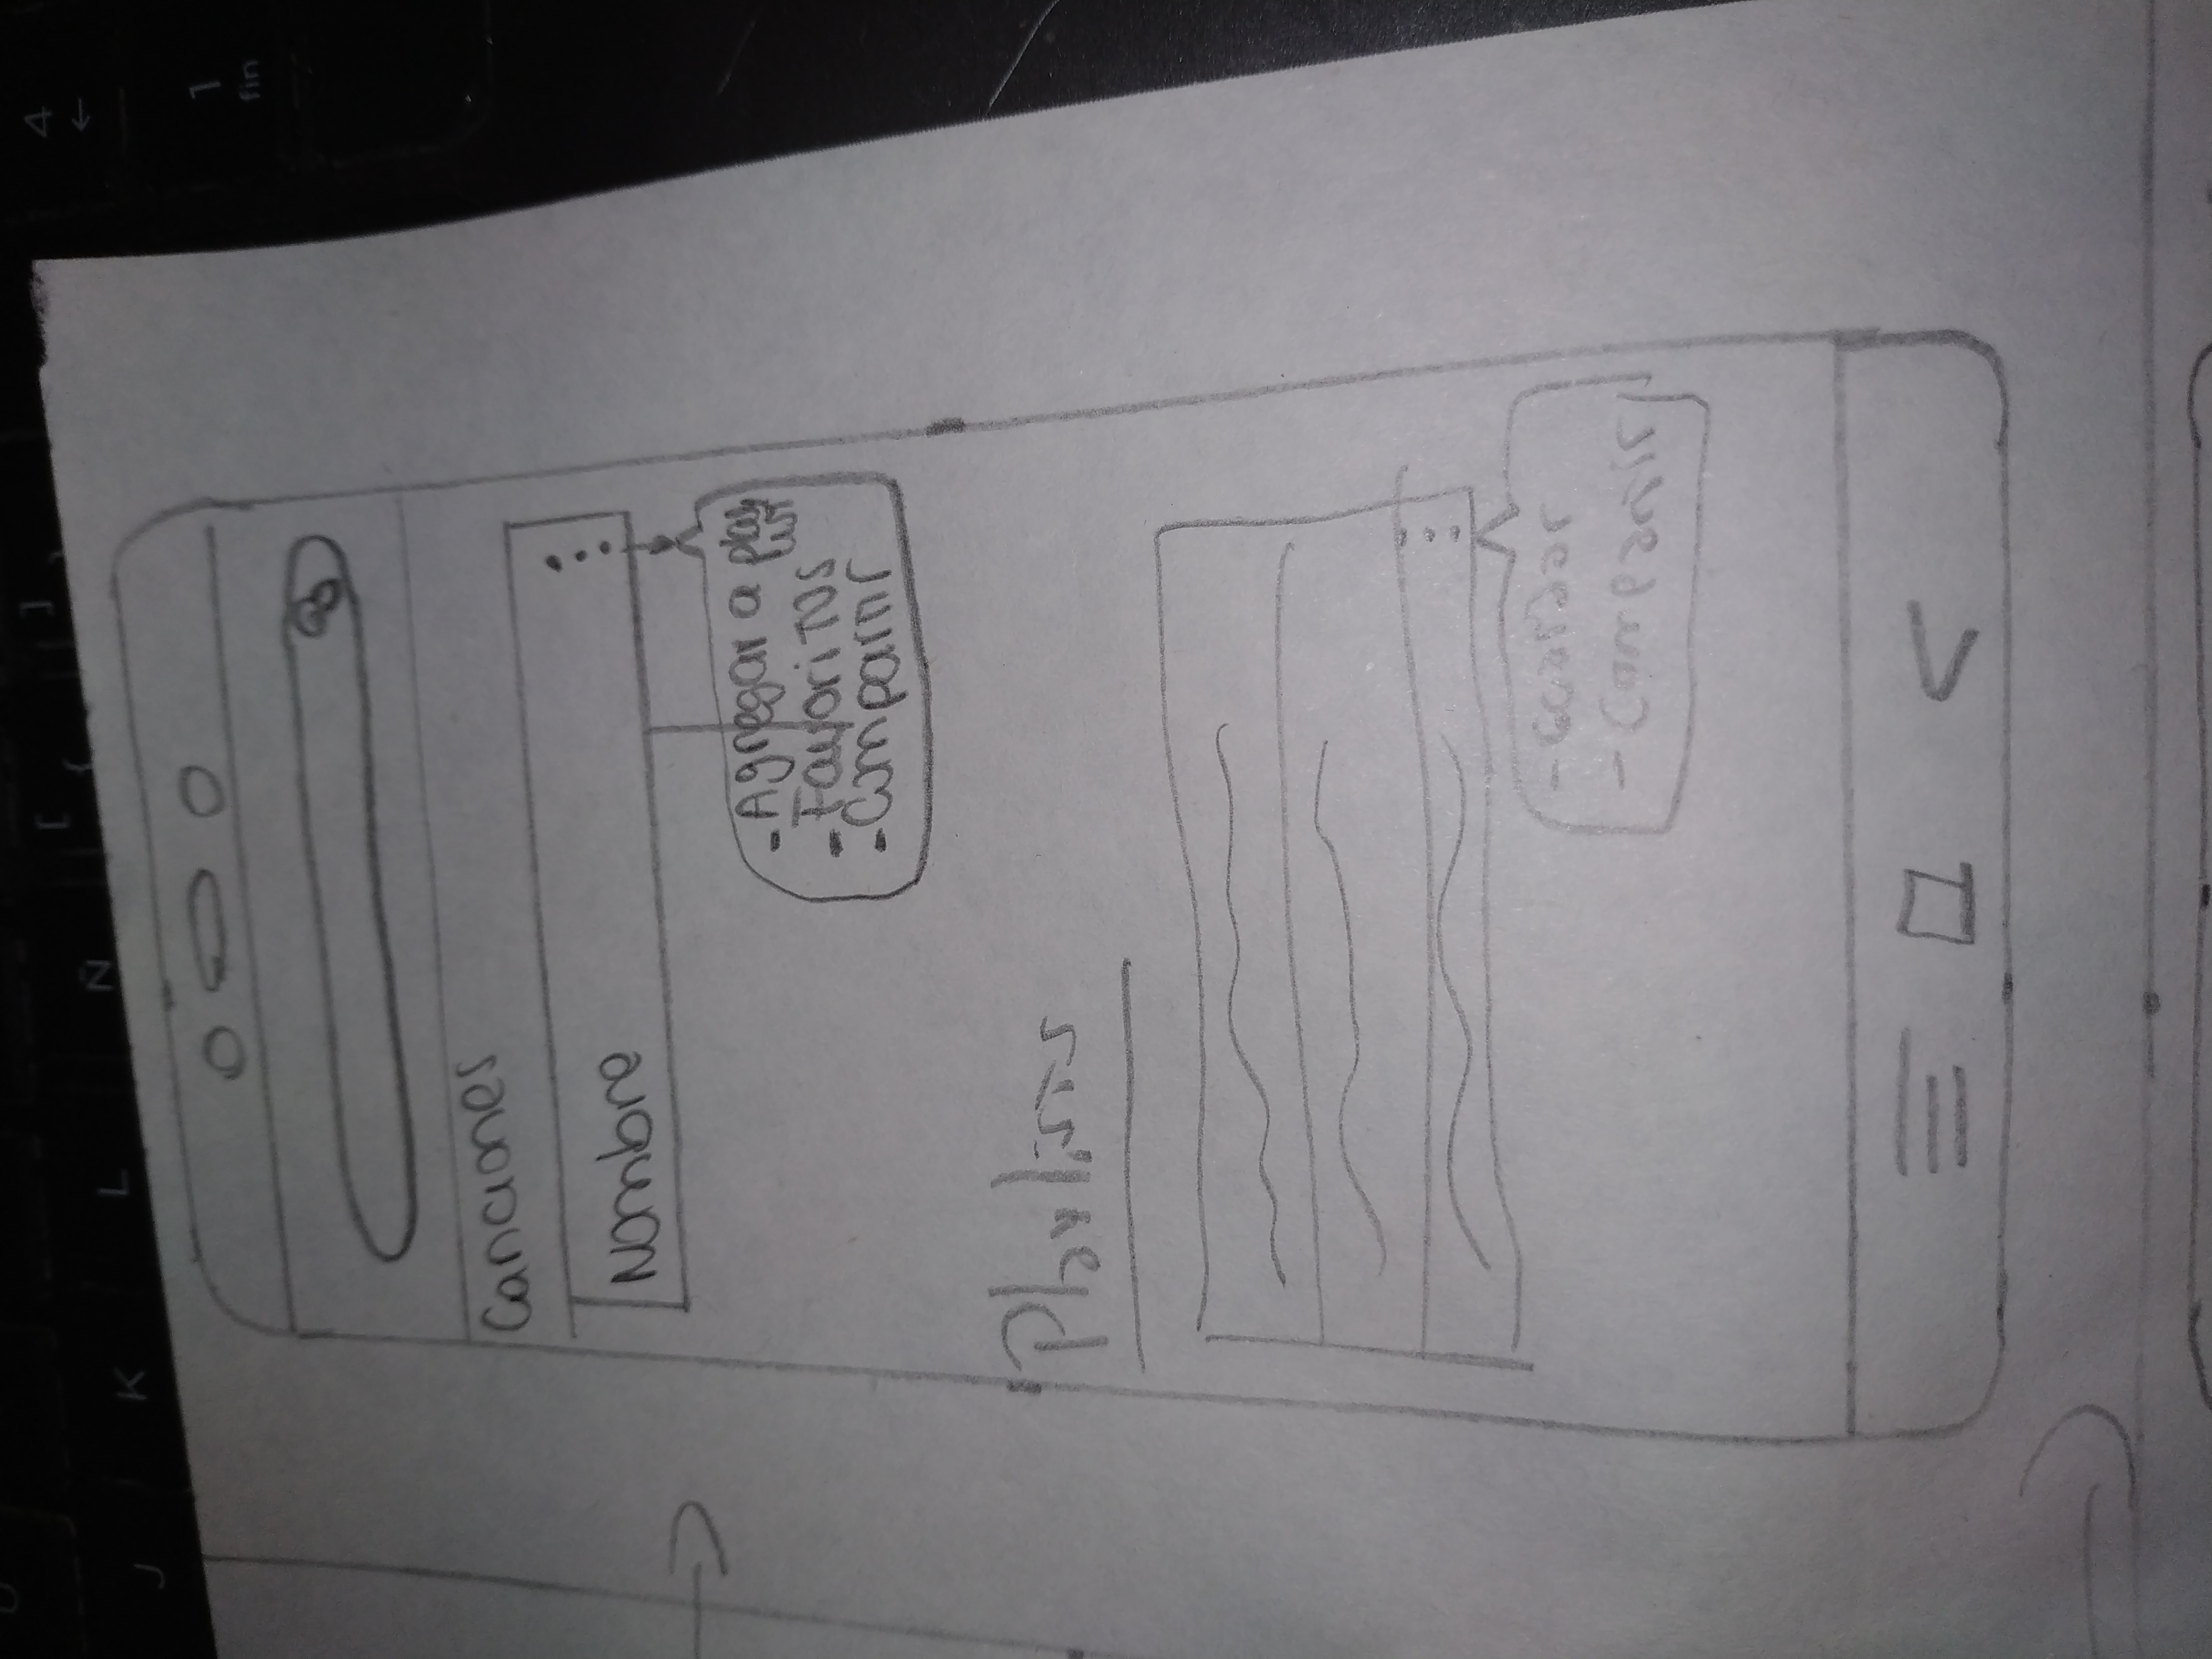 J K L Ñ [ ]
{ }
4
←
1
fin
Canciones
Nombre
- Agregar a play
list
- Favoritos
- Compartir
Playlists
- Guardar
- Compartir